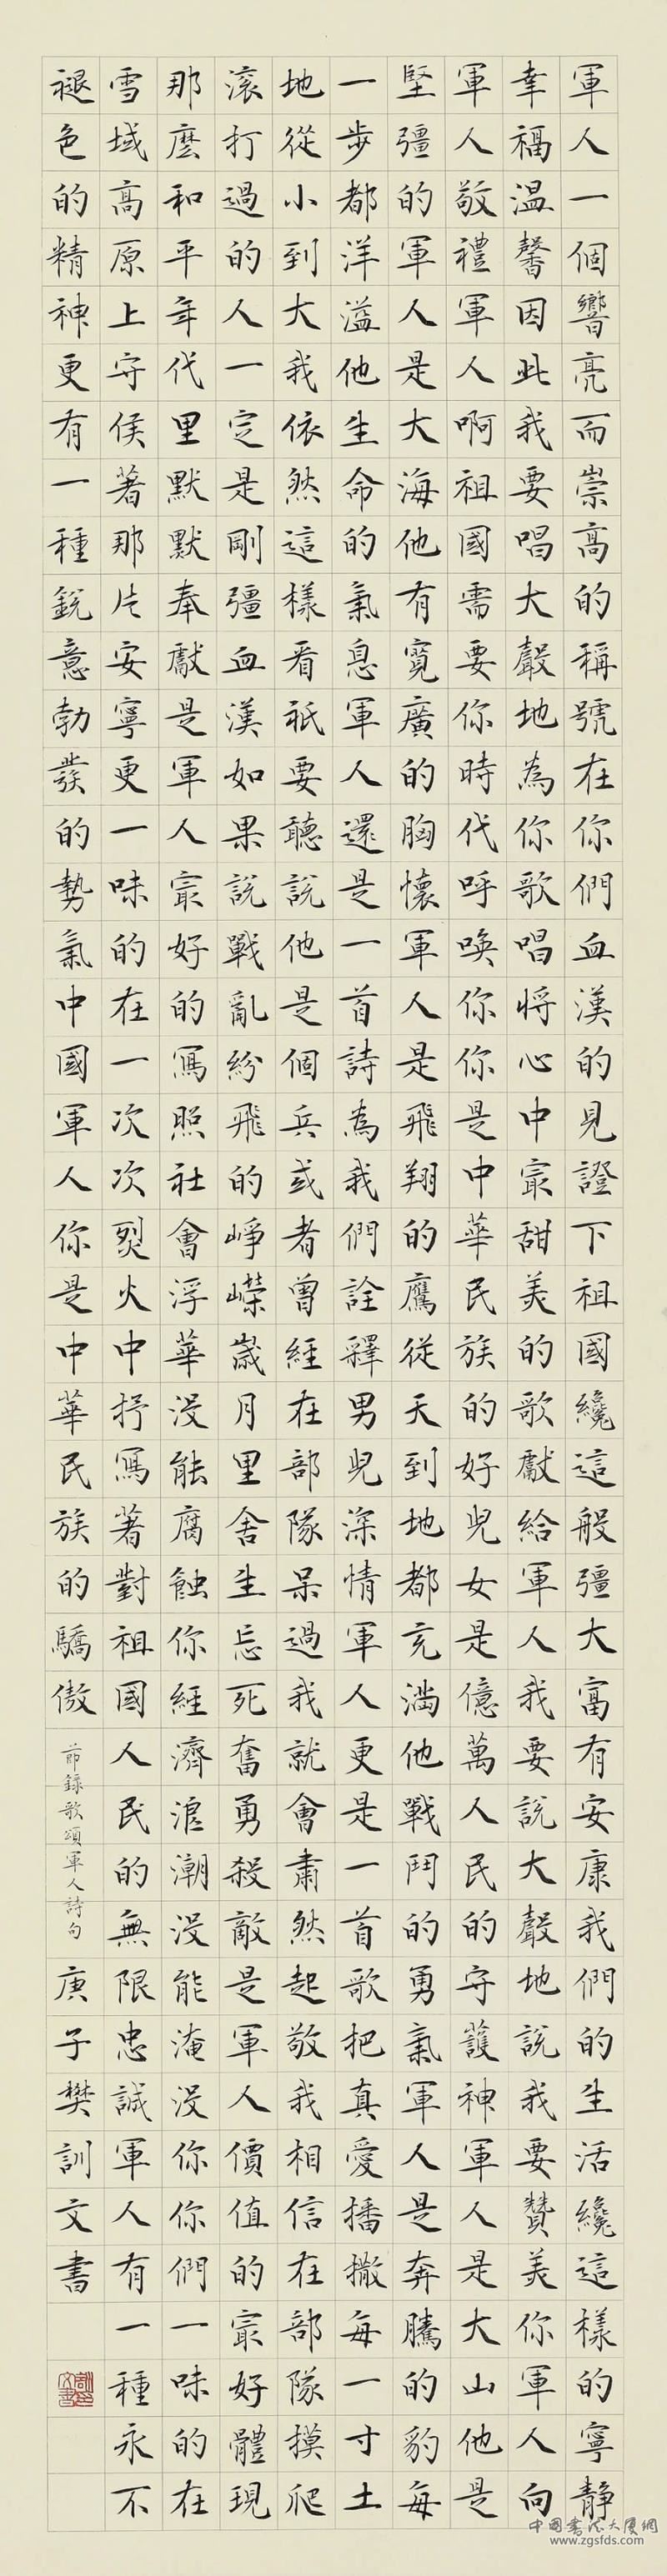 軍人一個響亮而崇高的稱號在你們血漢的見證下祖國纔這般彊大富有安康我們的生活纔這樣的寧靜
幸福温馨因此我要唱大聲地為你歌唱將心中最甜美的歌獻給軍人我要說大聲地說我要贊美你軍人向
軍人敬禮軍人啊祖國需要你時代呼喚你你是中華民族的好兒女是億萬人民的守護神軍人是大山他是
堅彊的軍人是大海他有寬廣的胸懷軍人是飛翔的鷹從天到地都充滿他戰鬥的勇氣軍人是奔騰的豹每
一步都洋溢他生命的氣息軍人還是一首詩為我們詮釋男兒深情軍人更是一首歌把真愛播撒每一寸土
地從小到大我依然這樣看衹要聽說他是個兵或者曾經在部隊呆過我就會肅然起敬我相信在部隊摸爬
滾打過的人一定是剛彊血漢如果說戰亂紛飛的崢嶸歲月里舍生忘死奮勇殺敵是軍人價值的最好體現
那麼和平年代里默默奉獻是軍人最好的寫照社會浮華没能腐蝕你經濟浪潮没能淹没你你們一味的在
雪域高原上守侯著那片安寧更一味的在一次次烈火中抒寫著對祖國人民的無限忠誠軍人有一種永不
褪色的精神更有一種銳意勃發的勢氣中國軍人你是中華民族的驕傲
節錄歌頌軍人詩句
庚子樊訓文書
中国书法大厦网
www.zgsfds.com